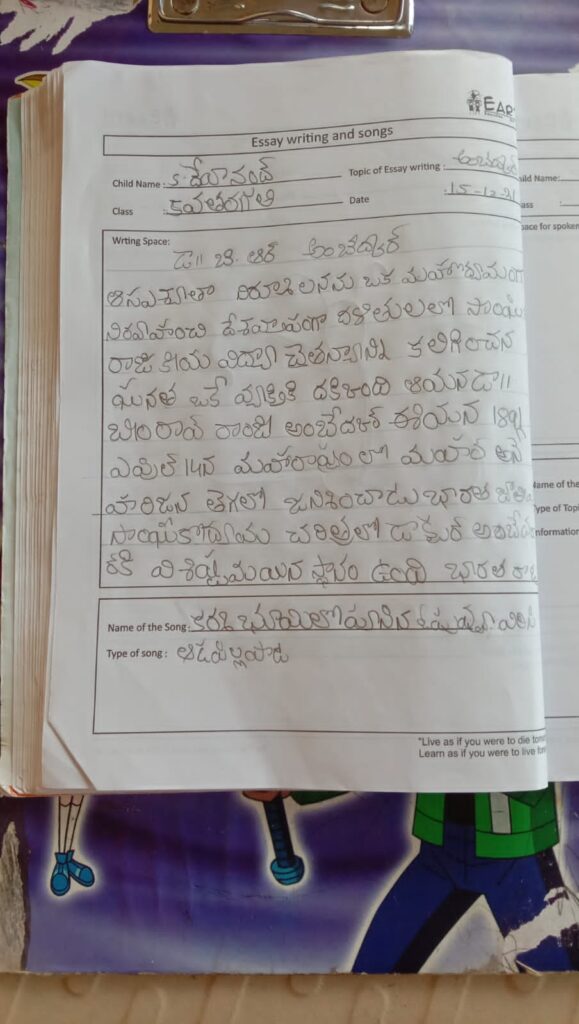 EAR
Essay writing and songs
Child Name : S. దేవానంద్ Topic of Essay writing : అంబేద్కర్
Class Date : 15-12-21
Wrting Space:
డా॥ బి. ఆర్ అంబేద్కర్
నిర్మూలనను ఒక మహోద్యమంగా
నిరవహించి దేశవ్యాపంగా దళితులలో సాంఘి
రాజకీయ విద్యా చైతన్యాన్ని కలిగించన
ఘనత ఒకే వ్యక్తికి దకికింది ఆయన డా॥
బీంరావ్ రాంజీ అంబేదకర్ ఈయన 1891
ఎప్రిల్ 14న మహారాష్ట్రం లో మహార్ అనే
హరిజన తెగలో జనిశించాడు భారత
సాంఘికోద్యమ చరిత్రలో డాక్టర్ అంబేద్క
ర్ కి విశిష్టమయిన స్థానం ఉంది భారత రాజ
Name of the Song:
Type of song : ఆడపిల్లపాట
"Live as if you were to die tomo
Learn as if you were to live for
ild Name:
ass :
pace for spoken
Name of the
Type of Topi
nformation